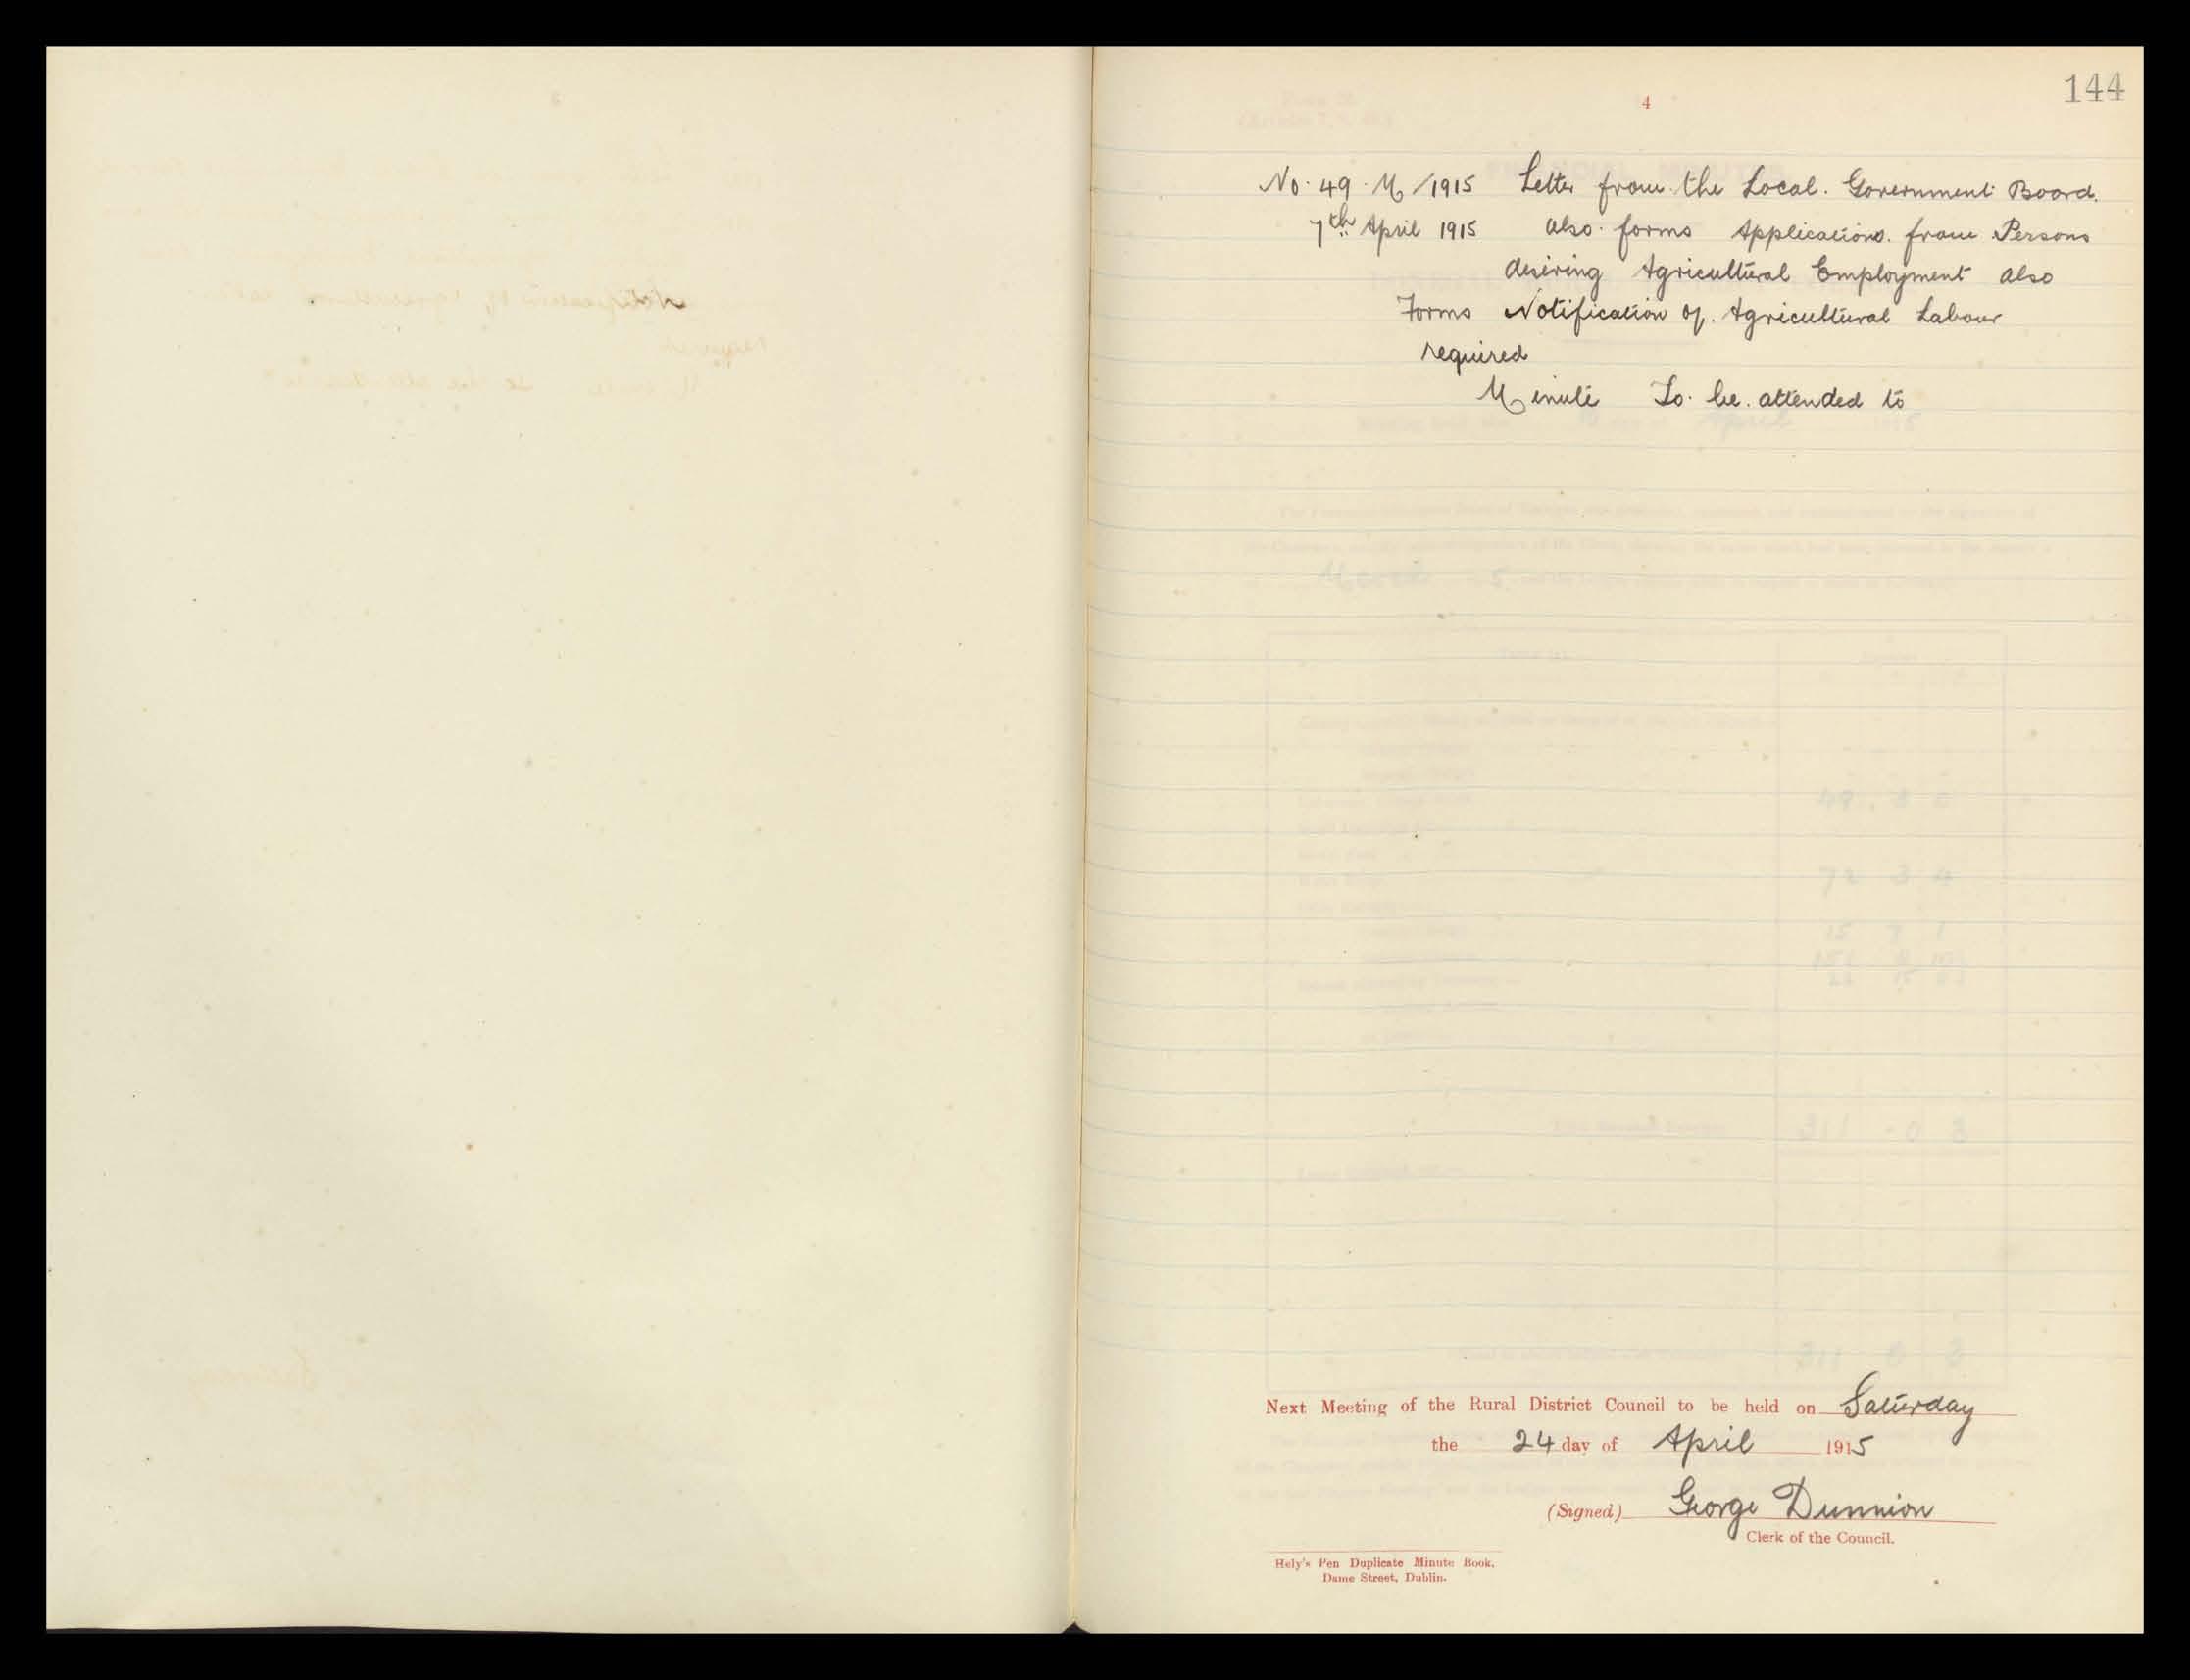 144
4
No. 49. M/1915 Letter from the Local. Government Board.
7th April 1915 also. forms Applications. from Persons
desiring Agricultural Employment also
Forms Notification of. Agricultural Labour
required
Minute To. be. attended to
Next Meeting of the Rural District Council to be held on Saturday
the 24 day of April 1915
(Signed) George Dunnion
Clerk of the Council.
Hely's Pen Duplicate Minute Book.
Dame Street, Dublin.